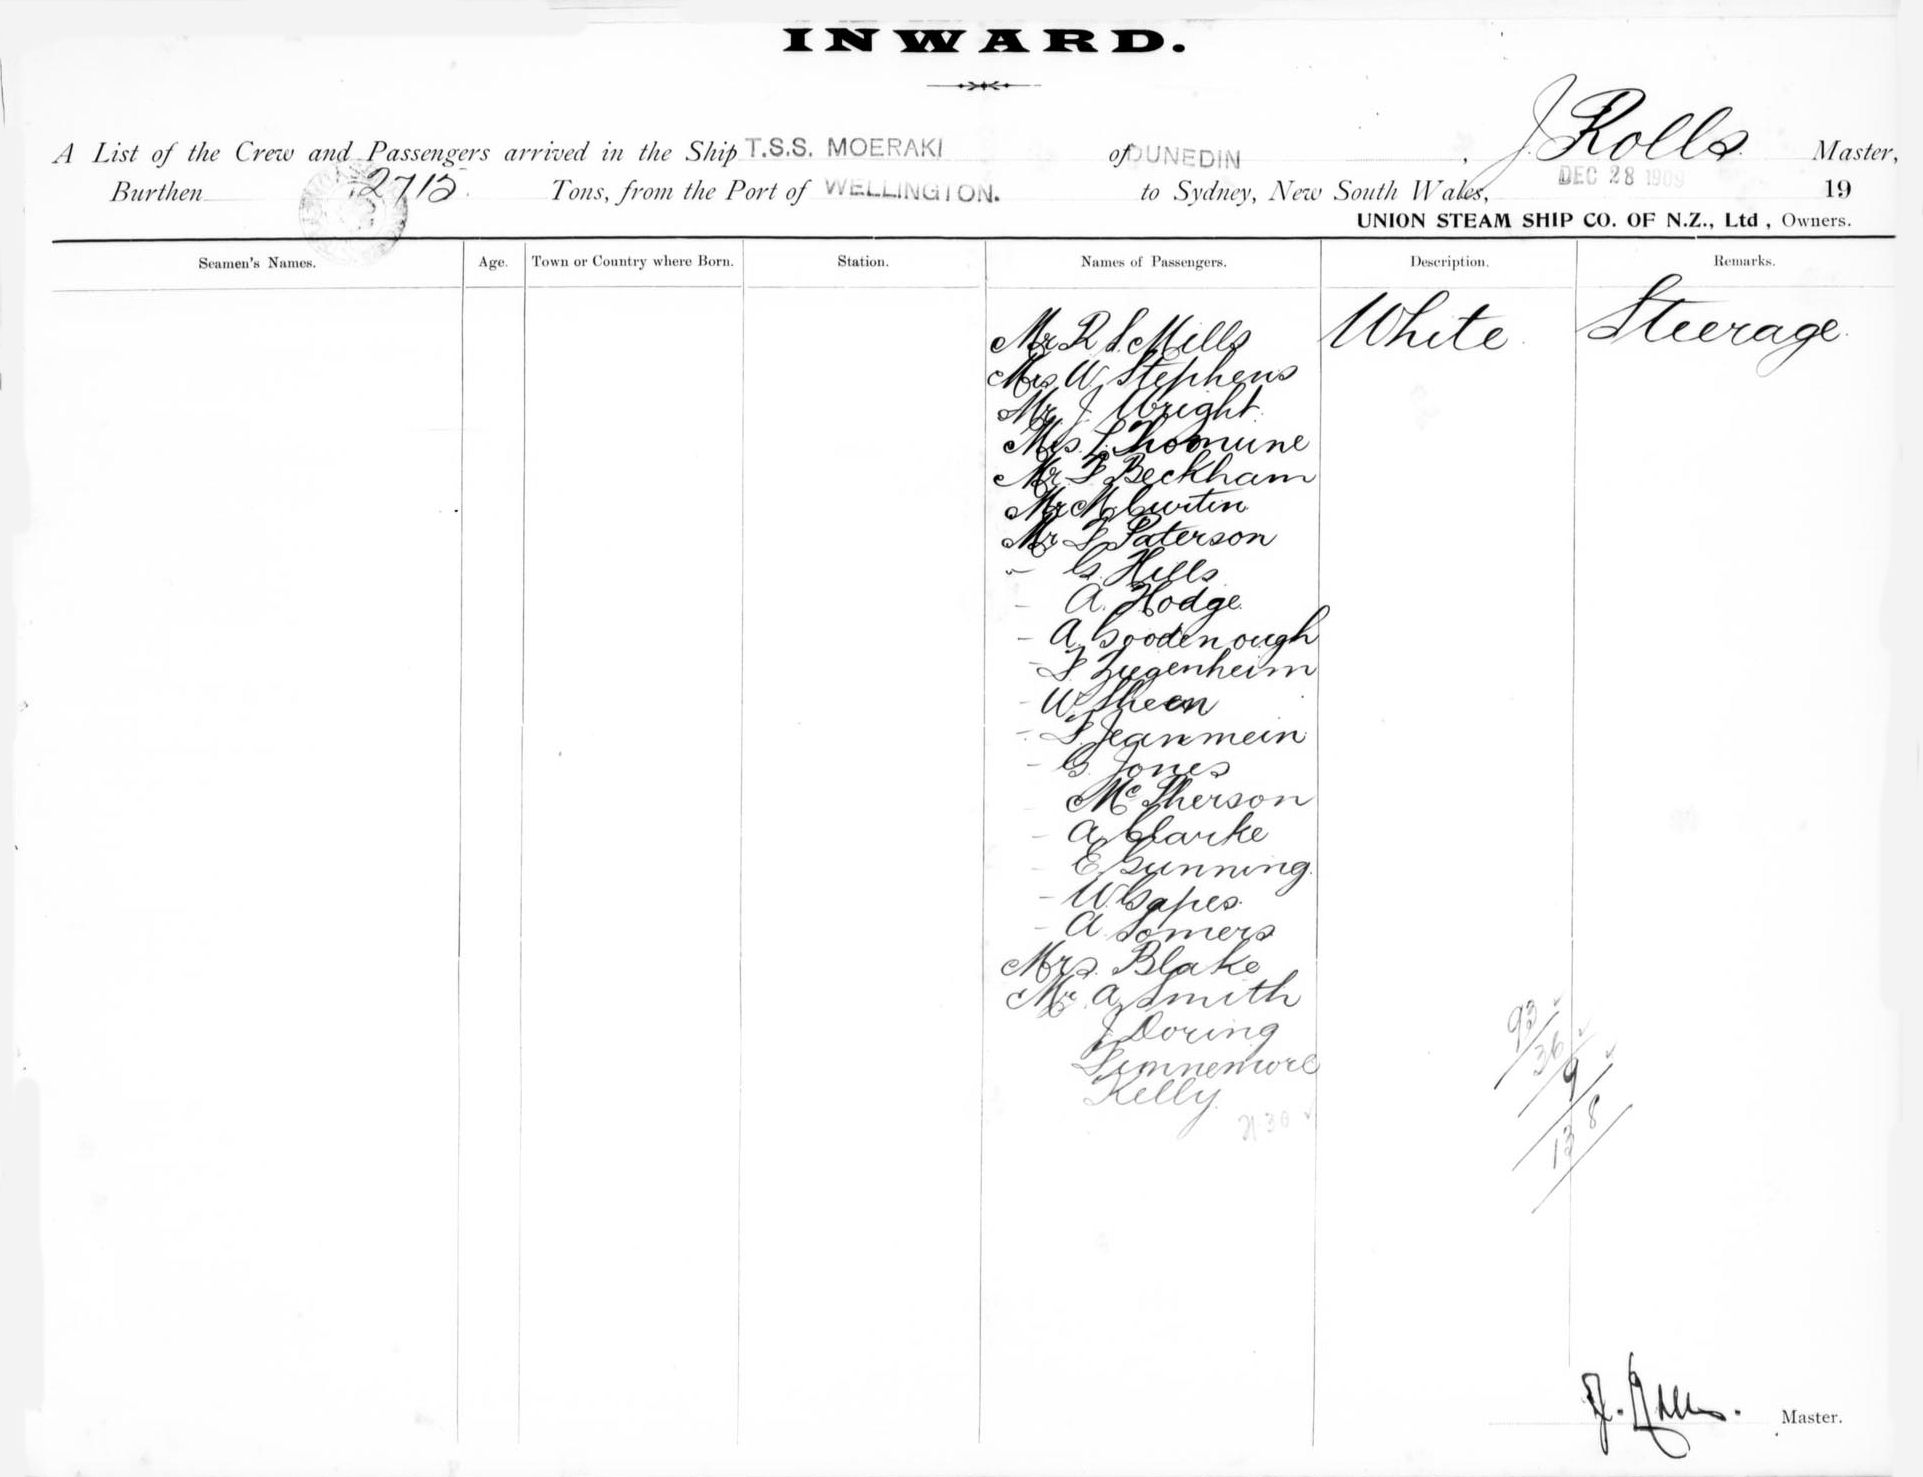 INWARD.
A List of the Crew and Passengers arrived in the Ship T.S.S. MOERAKI of DUNEDIN, J. Rolls Master,
Burthen 2715 Tons, from the Port of WELLINGTON. to Sydney, New South Wales, DEC 28 1909 19
UNION STEAM SHIP CO. OF N.Z., Ltd, Owners.
Seamen's Names. Age. Town or Country where Born. Station. Names of Passengers. Description. Remarks.
Mr R S Mills White Steerage
Mrs W Stephens
Mr J Wright
Mrs
Mr F Beckham
Mr M Curtin
Mr F Paterson
" G. Hills
- A. Hodge
- A Goodenough
- F
- W Sheen
- S. Jeanmein
- G Jones
- McPherson
- A Clarke
- E Gunning
- W. Gapes
- A Somers
Mrs. Blake
Mr A Smith
J Doring
Finnemore
Kelly
21.30
93
36
9
8
13
J. Rolls. Master.